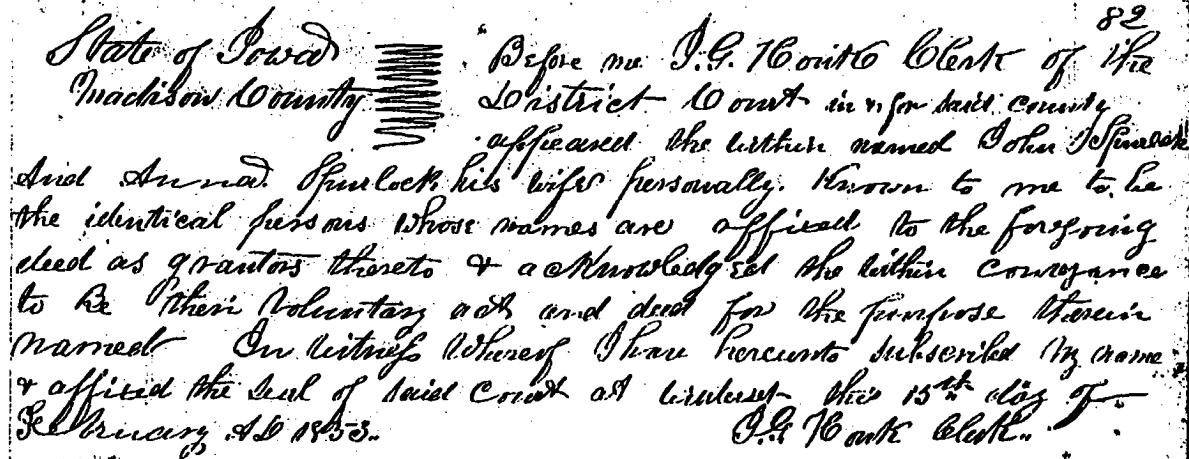 82
State of Iowa Before me I.G. Houk Clerk of the
Madison County District Court in & for said county
appeared the within named John Spurlock
And Anna Spurlock his wife personally Known to me to be
the identical persons whose names are affixed to the foregoing
deed as grantors thereto & acknowledged the within conveyance
to be their voluntary act and deed for the purpose therein
named In witness whereof I have hereunto subscribed my name
& affixed the seal of said Court at this 15th day of
February AD 1853. I.G Houk Clerk.